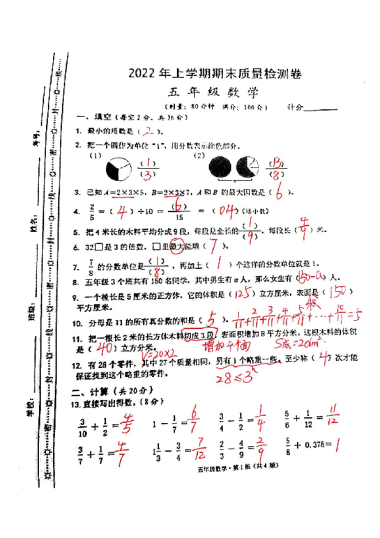 2022年上学期期末质量检测卷
五年级数学
(时量:80分钟 满分:100分) 计分
一、填空(每空2分,共36分)
1. 最小的质数是( 2 )。
2. 把一个圆作为单位"1",用分数表示涂色部分。
(1) (1)/(3) (2) (13)/(8)
3. 已知A=2×3×5,B=2×3×7,A和B的最大因数是( 6 )。
4. 2/5=( 4 )÷10=(6)/15=( 0.4 )(填小数)
5. 把4米长的木料平均分成9段,每段是全长的(1)/(9),每段长( 4/9 )米。
6. 32□是3的倍数,□里最大能填( 7 )。
7. 7/8的分数单位是(1)/(8),再加上( 1 )个这样的分数单位就是1。
8. 五年级3个班共有150名同学,其中男生有a人,那么女生有(150-a)人。
9. 一个棱长是5厘米的正方体,它的体积是( 125 )立方厘米,表面是( 150 )
平方厘米。
10. 分母是11的所有真分数的和是( 5 )。 1/11+2/11+3/11+4/11+5/11+…+10/11=5
11. 把一根长2米的长方体木料切成3段,表面积增加8平方分米,这根木料的体积
是( 40 )立方分米。 V=20×2 增加4个面 S底=2dm²
12. 有28个零件,其中27个质量相同,另有1个略重一些,至少称( 4 )次才能
保证找到这个略重的零件。 28≤3
二、计算(共20分)
13. 直接写出得数。(8分)
3/10+1/2=4/5 1-1/7=6/7 3/4-1/2=1/4 5/6+1/12=11/12
3/7+1/7=4/7 1 1/3-3/4=7/12 2/3-4/9=2/9 5/8+0.375=1
五年级数学·第1版(共4版)
学校:
班级:
姓名:
考号: